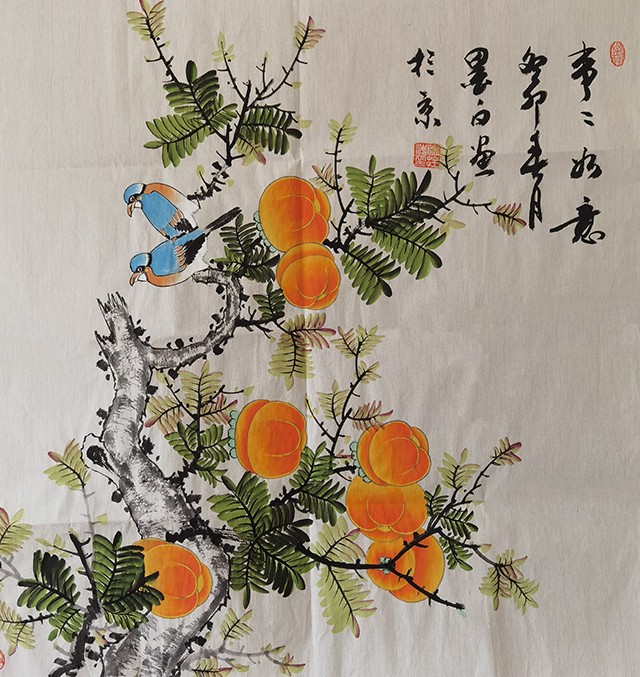 事〻如意
癸卯春月
墨白画
於京